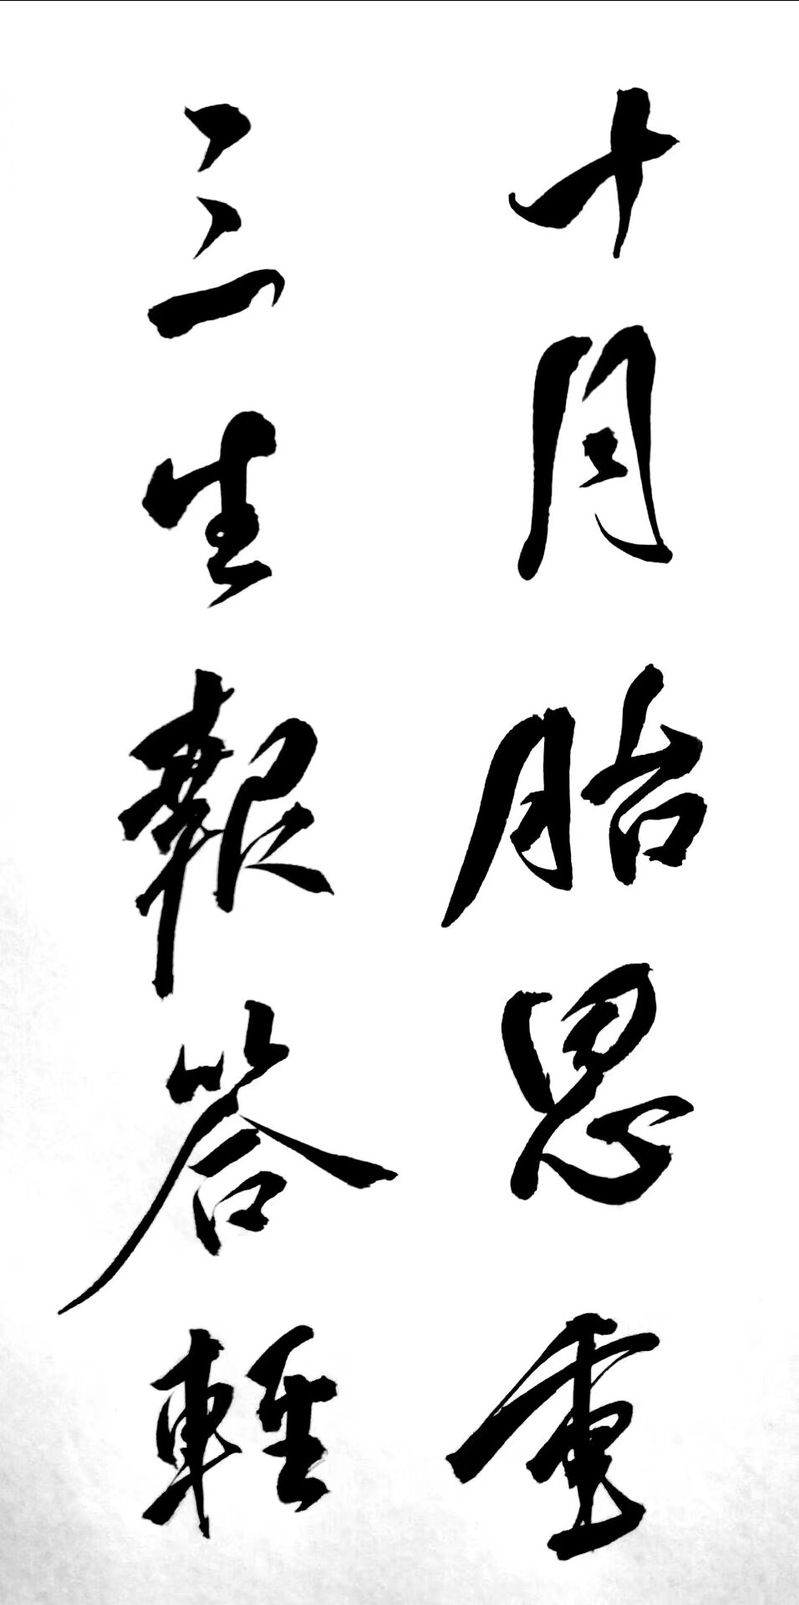 十月胎恩重
三生報答輕